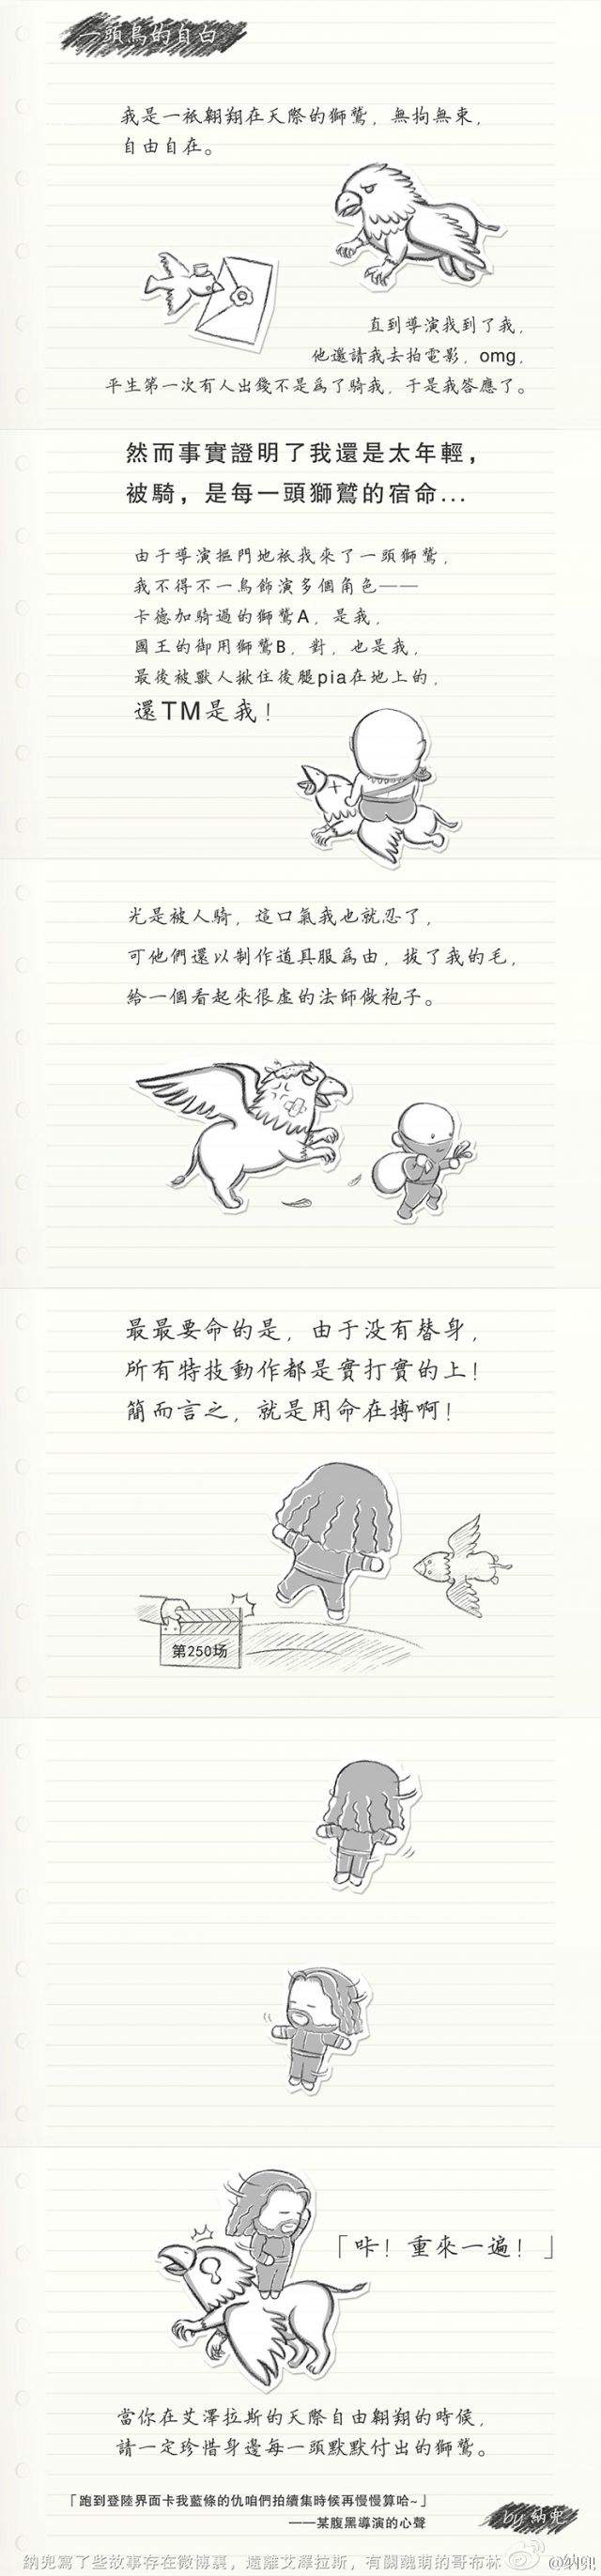 一頭鳥的自白
我是一袛翱翔在天際的獅鷲，無拘無束，
自由自在。
直到導演找到了我，
他邀請我去拍電影，omg，
平生第一次有人出錢不是爲了騎我，于是我答應了。
然而事實證明了我還是太年輕，
被騎，是每一頭獅鷲的宿命...
由于導演摳門地袛找來了一頭獅鷲，
我不得不一鳥飾演多個角色——
卡德加騎過的獅鷲A，是我，
國王的御用獅鷲B，對，也是我，
最後被獸人揪住後腿pia在地上的，
還TM是我！
光是被人騎，這口氣我也就忍了，
可他們還以制作道具服爲由，拔了我的毛，
給一個看起來很虛的法師做袍子。
最最要命的是，由于没有替身，
所有特技動作都是實打實的上！
簡而言之，就是用命在搏啊！
第250场
「咔！重來一遍！」
當你在艾澤拉斯的天際自由翱翔的時候，
請一定珍惜身邊每一頭默默付出的獅鷲。
「跑到登陸界面卡我藍條的仇咱們拍續集時候再慢慢算哈~」
——某腹黑導演的心聲
by 納兜
納兜寫了些故事存在微博裏，遠離艾澤拉斯，有關醜萌的哥布林